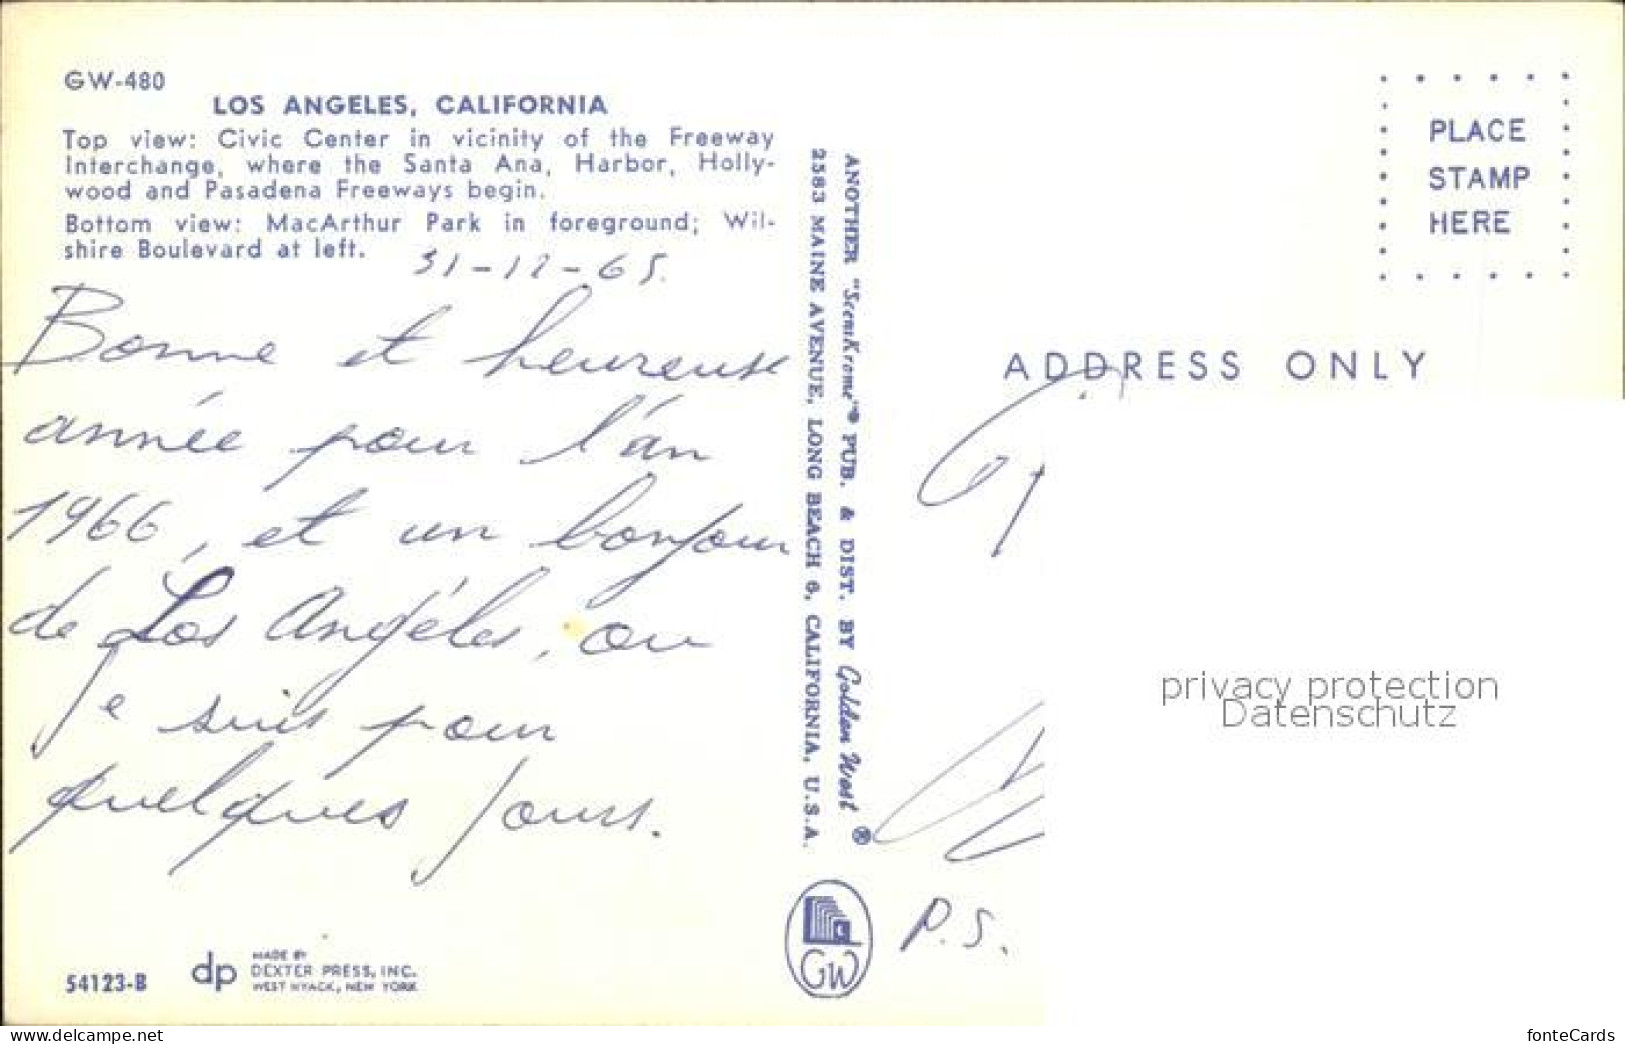 GW-480
LOS ANGELES, CALIFORNIA
Top view: Civic Center in vicinity of the Freeway
Interchange, where the Santa Ana, Harbor, Holly-
wood and Pasadena Freeways begin.
Bottom view: MacArthur Park in foreground; Wil-
shire Boulevard at left.
31-12-65.
Bonne et heureuse
année pour l'an
1966, et un bonjour
de Los Angéles, ou
je suis pour
quelques jours.
54123-B
dp
MADE BY
DEXTER PRESS, INC.
WEST NYACK, NEW YORK
ANOTHER "ScenKrome"® PUB. & DIST. BY Golden West ®
2583 MAINE AVENUE, LONG BEACH 6, CALIFORNIA, U.S.A.
GW
PLACE
STAMP
HERE
ADDRESS ONLY
P.S.
privacy protection
Datenschutz
www.delcampe.net
fonteCards